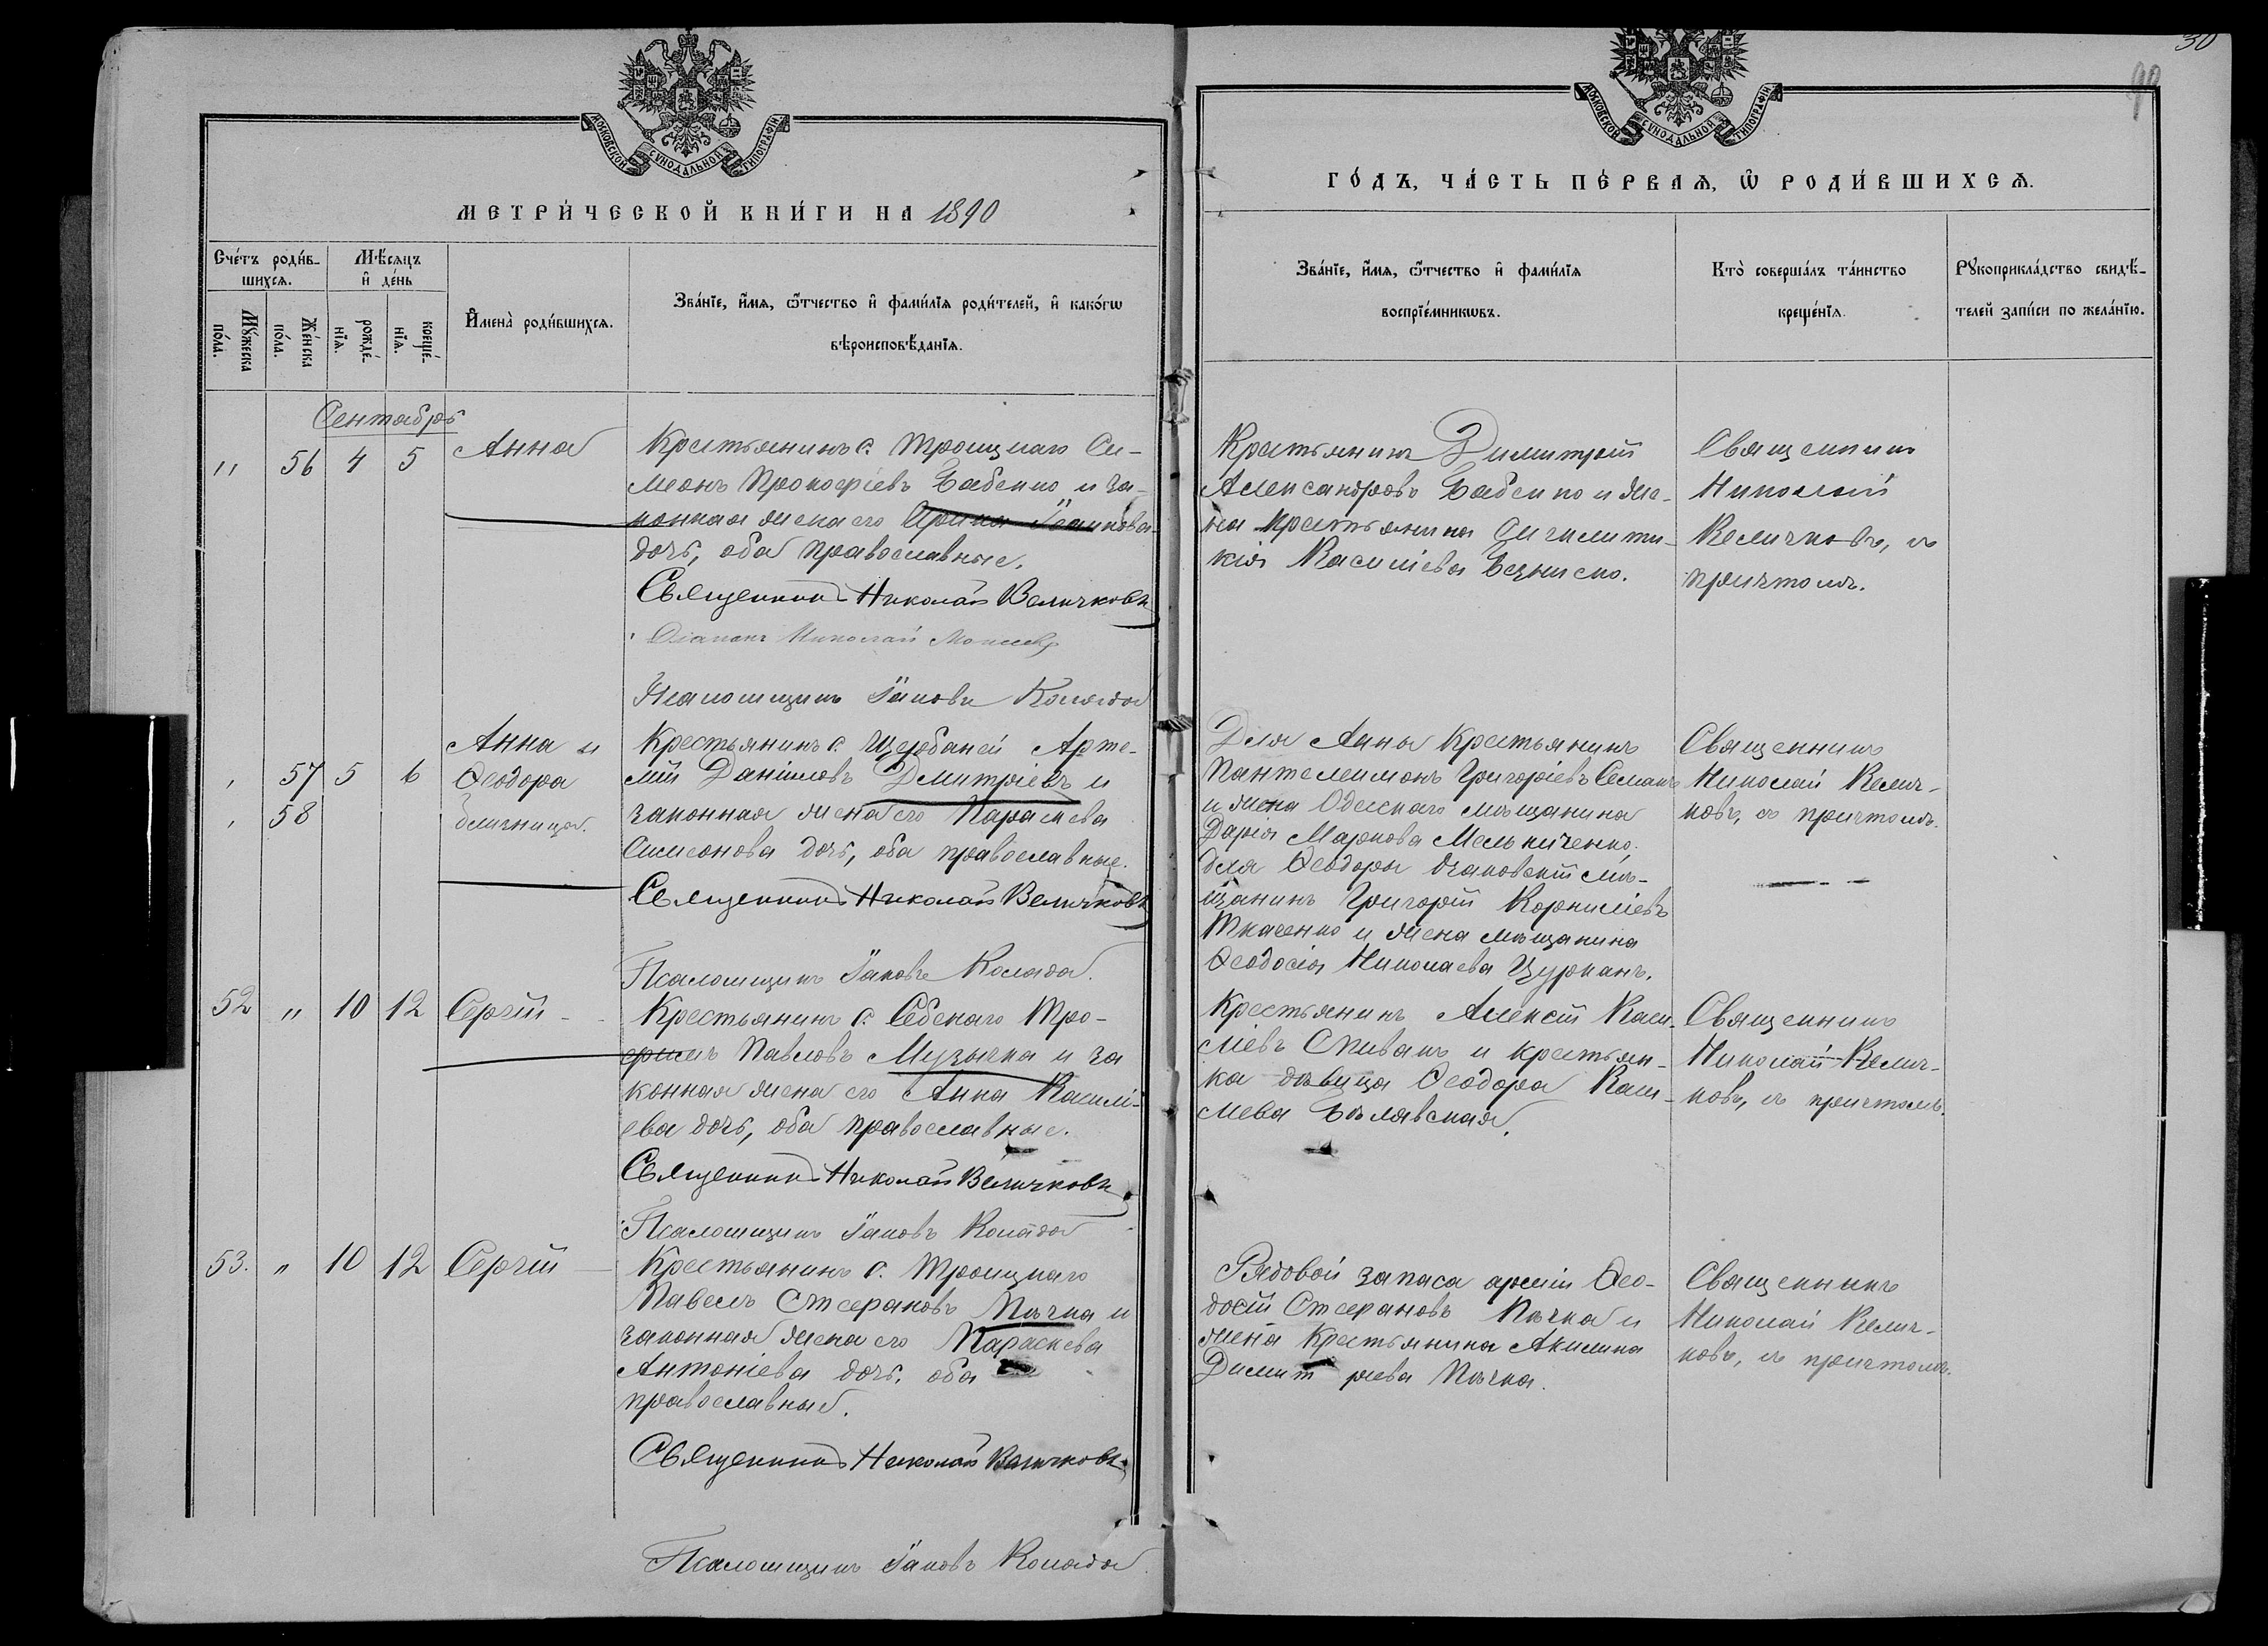 30
90
МОСКОВСКОЙ СѴНОДАЛЬНОЙ ТИПОГРАФІИ
МЕТРИ́ЧЕСКОЙ КНИ́ГИ НА 1890
Сче́тъ роди́в-
шихсѧ.
Мꙋ́жеска
по́ла.
Же́нска
по́ла.
Мѣ́сѧцъ
и҆ де́нь
рожде́-
нїѧ.
креще́-
нїѧ.
И҆мена̀ роди́вшихсѧ.
Зва́нїе, и҆́мѧ, ѻ҆́тчество и҆ фами́лїѧ роди́телей, и҆ како́гѡ
вѣроисповѣ́данїѧ.
Сентябрь
" 56 4 5 Анна
Крестьянинъ с. Троицкаго Си-
меонъ Прокофіевъ Бабенко и за-
конная жена его Ирина Іоаннова
дочь, оба православные.
Священникъ Николай Величковъ
Діаконъ Николай
Псаломщикъ Іаковъ Коляда
57 5 6
58
Анна и
Ѳеодора
близницы.
Крестьянинъ с. Щербаней Арте-
мій Даніиловъ Дмитріевъ и
законная жена его Параскева
Симеонова дочь, оба православные.
Священникъ Николай Величковъ
Псаломщикъ Іаковъ Коляда.
52 " 10 12 Сергій
Крестьянинъ с. Себскаго Тро-
фимъ Павловъ Музычка и за
конная жена его Анна Василі-
ева дочь, оба православные.
Священникъ Николай Величковъ
Псаломщикъ Іаковъ Коляда
53. " 10 12 Сергій
Крестьянинъ с. Троицкаго
Павелъ Стефановъ Пѣчка и
законная жена его Параскева
Антоніева дочь, оба
православные.
Священникъ Николай Величковъ
Псаломщикъ Іаковъ Коляда
МОСКОВСКОЙ СѴНОДАЛЬНОЙ ТИПОГРАФІИ
ГО́ДЪ, ЧА́СТЬ ПЕ́РВАѦ, Ѽ РОДИ́ВШИХСѦ.
Зва́нїе, и҆́мѧ, ѻ҆́тчество и҆ фами́лїѧ
воспрїе́мникѡвъ.
Кто̀ соверша́лъ та́инство
креще́нїѧ.
Рꙋкоприкла́дство свидѣ́-
телей за́писи по жела́нїю.
Крестьянинъ Димитрій
Александровъ Бабенко и же-
на крестьянина
кія Василіева
Священникъ
Николай
Величковъ, съ
причтомъ.
Для Анны крестьянинъ
Пантелеимонъ Григоріевъ
и жена Одесскаго мѣщанина
Дарія Маркова Мельниченко,
для Ѳеодоры Очаковскій мѣ-
щанинъ Григорій Корниліевъ
Ткаченко и жена мѣщанина
Ѳеодосія Николаева Цурканъ.
Священникъ
Николай Велич-
ковъ, съ причтомъ.
Крестьянинъ Алексій Васи-
ліевъ Спивакъ и крестьян-
ка дѣвица Ѳеодора Васи-
ліева Бѣлявская.
Священникъ
Николай Велич-
ковъ, съ причтомъ.
Рядовой запаса арміи Ѳео-
досій Стефановъ Пѣчка и
жена крестьянина Акилина
Димитріева Пѣчка.
Священникъ
Николай Велич-
ковъ, съ причтомъ.